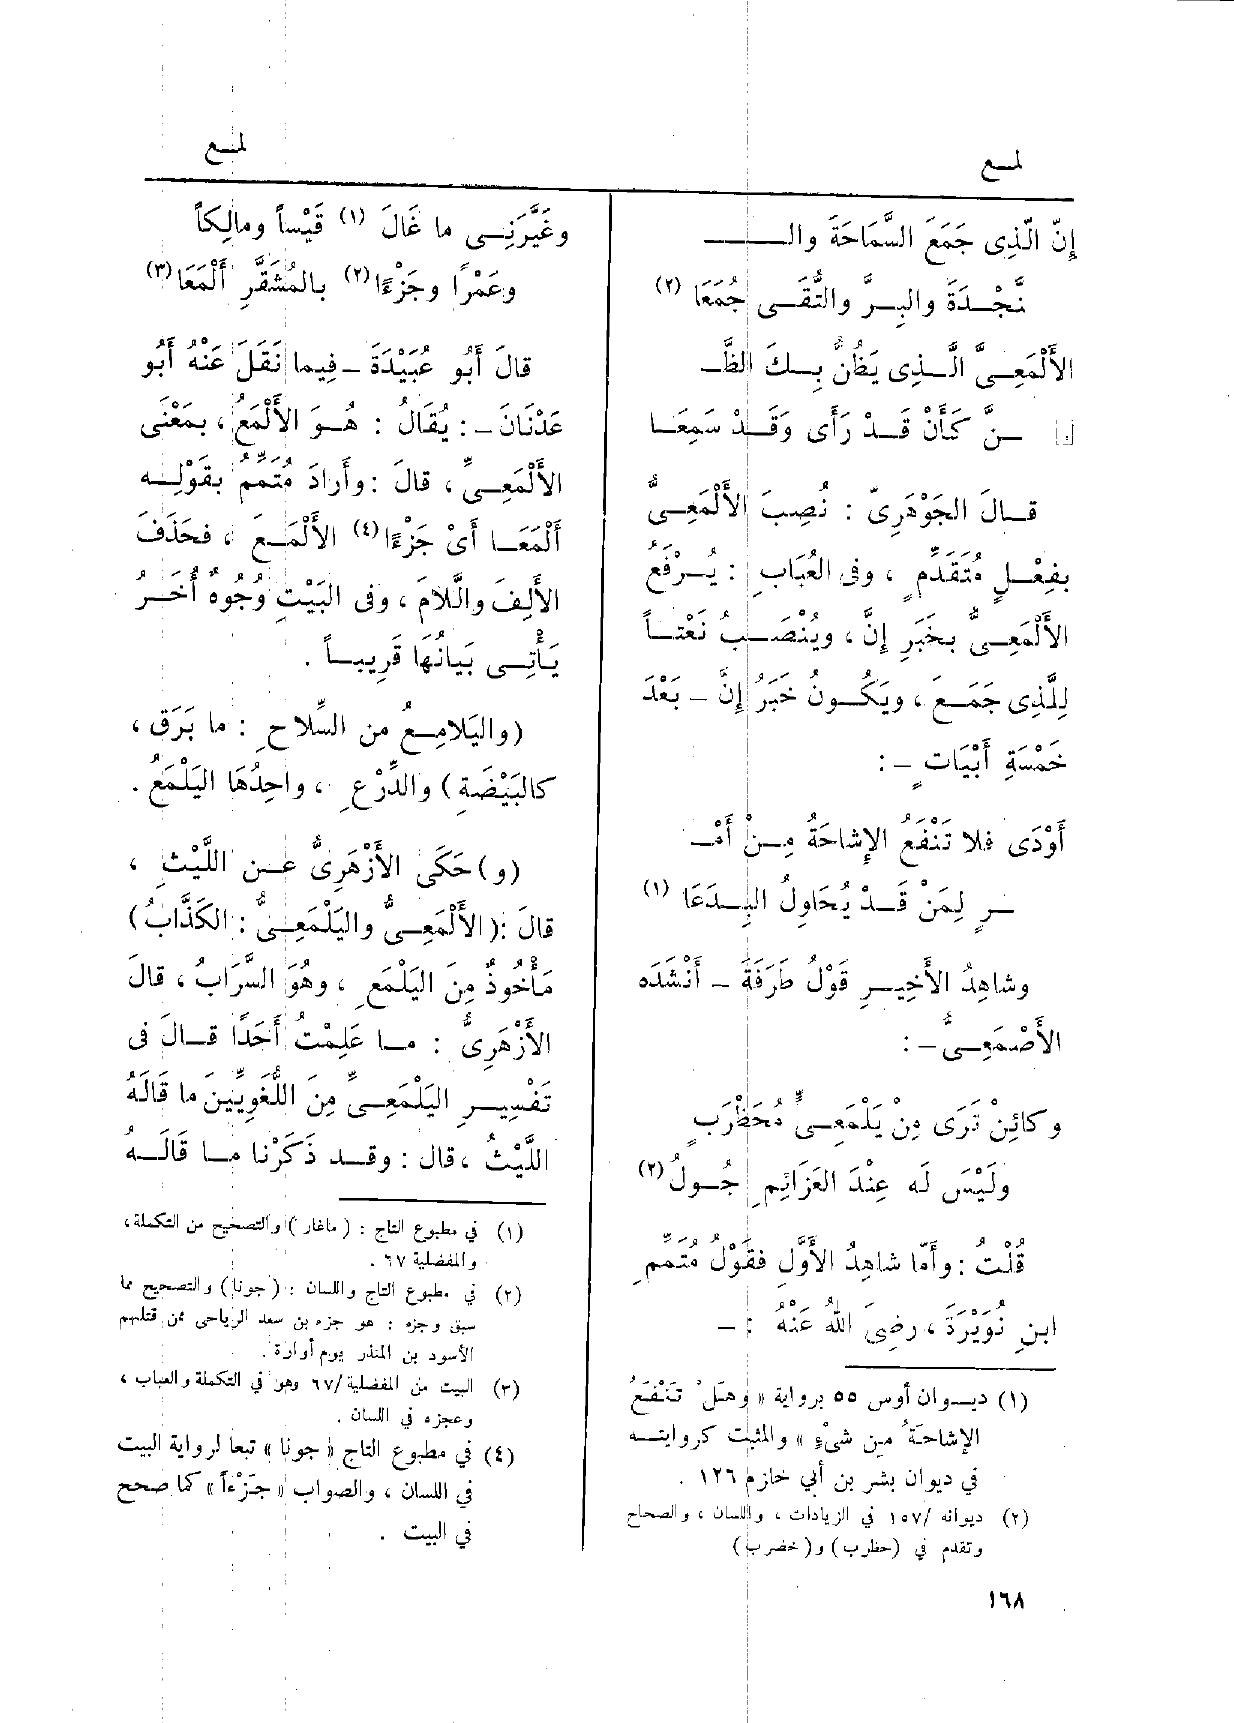 لمع
إِنّ الَّذِى جَمَعَ السَّمَاحَةَ والـ
نَّجْدَةَ والبِرَّ والتُّقَى جُمَعَا (٢)
الأَلْمَعِىَّ الَّذِى يَظُنُّ بِكَ الظَّـ
ـنَّ كَأَنْ قَدْ رَأَى وَقَدْ سَمِعَا
قالَ الجَوْهَرِىّ : نُصِبَ الأَلْمَعِىُّ
بفِعْلٍ مُتَقَدِّمٍ ، وفى العُبَابِ : يُرْفَعُ
الأَلْمَعِىُّ بخَبَرِ إِنَّ ، ويُنْصَبُ نَعْتاً
لِلَّذِى جَمَعَ ، ويَكُونُ خَبَرُ إِنَّ – بَعْدَ
خَمْسَةِ أَبْيَاتٍ – :
أَوْدَى فلا تَنْفَعُ الإِشاحَةُ مِنْ أَمْـ
ـرٍ لِمَنْ قَدْ يُحَاوِلُ البِدَعَا (١)
وشاهِدُ الأَخِيرِ قَوْلُ طَرَفَةَ – أَنْشَدَه
الأَصْمَعِىُّ – :
وكائِنْ تَرَى مِنْ يَلْمَعِىٍّ مُحَظْرَبٍ
ولَيْسَ لَه عِنْدَ العَزَائِمِ جُولُ (٢)
قُلْتُ : وأَمّا شاهِدُ الأَوَّلِ فقَوْلُ مُتَمِّمِ
ابنِ نُوَيْرَةَ ، رضِىَ اللهُ عَنْهُ : –
(١) ديوان أوس ٥٥ برواية « وهَلْ تَنْفَعُ
الإشاحَةُ مِن شىْءٍ » والمثبت كروايته
في ديوان بشر بن أبي خازم ١٢٦ .
(٢) ديوانه /١٥٧ في الزيادات ، واللسان ، والصحاح
وتقدم في (حظرب) و(خضرب)
١٦٨
لمع
وغَيَّرَنِى ما غَالَ (١) قَيْساً ومالِكاً
وعَمْرًا وجَزْءًا (٢) بالمُشَقَّرِ أَلْمَعَا (٣)
قالَ أَبُو عُبَيْدَةَ – فِيما نَقَلَ عَنْهُ أَبُو
عَدْنَانَ – : يُقَالُ : هُوَ الأَلْمَعُ ، بمَعْنَى
الأَلْمَعِىِّ ، قالَ : وأَرادَ مُتَمِّمٌ بقَوْلِه
أَلْمَعَا أَىْ جَزْءًا (٤) الأَلْمَعَ ، فحَذَفَ
الأَلِفَ والَّلامَ ، وفى البَيْتِ وُجُوهٌ أُخَرُ
يَأْتِى بَيَانُهَا قَرِيباً .
(واليَلامِعُ من السِّلاحِ : ما بَرَق ،
كالبَيْضَةِ) والدِّرْعِ ، واحِدُهَا اليَلْمَعُ .
(و) حَكَى الأَزْهَرِىُّ عن اللَّيْثِ ،
قالَ : (الأَلْمَعِىُّ واليَلْمَعِىُّ : الكَذَّابُ)
مَأْخُوذٌ مِنَ اليَلْمَعِ ، وهُوَ السَّرَابُ ، قالَ
الأَزْهَرِىُّ : ما عَلِمْتُ أَحَدًا قالَ فى
تَفْسِيرِ اليَلْمَعِىِّ مِنَ اللُّغَوِيِّينَ ما قَالَهُ
اللَّيْثُ ، قال : وقد ذَكَرْنا ما قَالَهُ
(١) في مطبوع التاج : (ماغار) والتصحيح من التكملة ،
والمفضلية ٦٧ .
(٢) في مطبوع التاج واللسان : (جونا) والتصحيح مما
سبق وجزه : هو جزه بن سعد الرياحى ممن قتلهم
الأسود بن المنذر يوم أوارة .
(٣) البيت من المفضلية /٦٧ وهو في التكملة والعباب ،
وعجزه في اللسان .
(٤) في مطبوع التاج « جونا » تبعا لرواية البيت
في اللسان ، والصواب « جَزْءاً » كما صحح
في البيت .